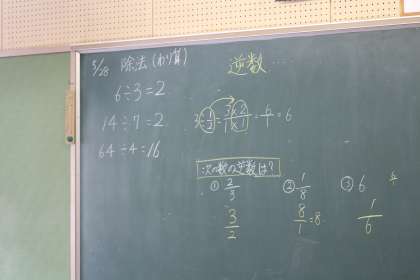 5/28 除法(わり算)
逆数……
6÷3=2
14÷7=2
64÷4=16
3÷1/2=3×2/1×1=6/1=6
次の数の逆数は?
① 2/3 ② 1/8 ③ 6
3/2 8/1=8 1/6